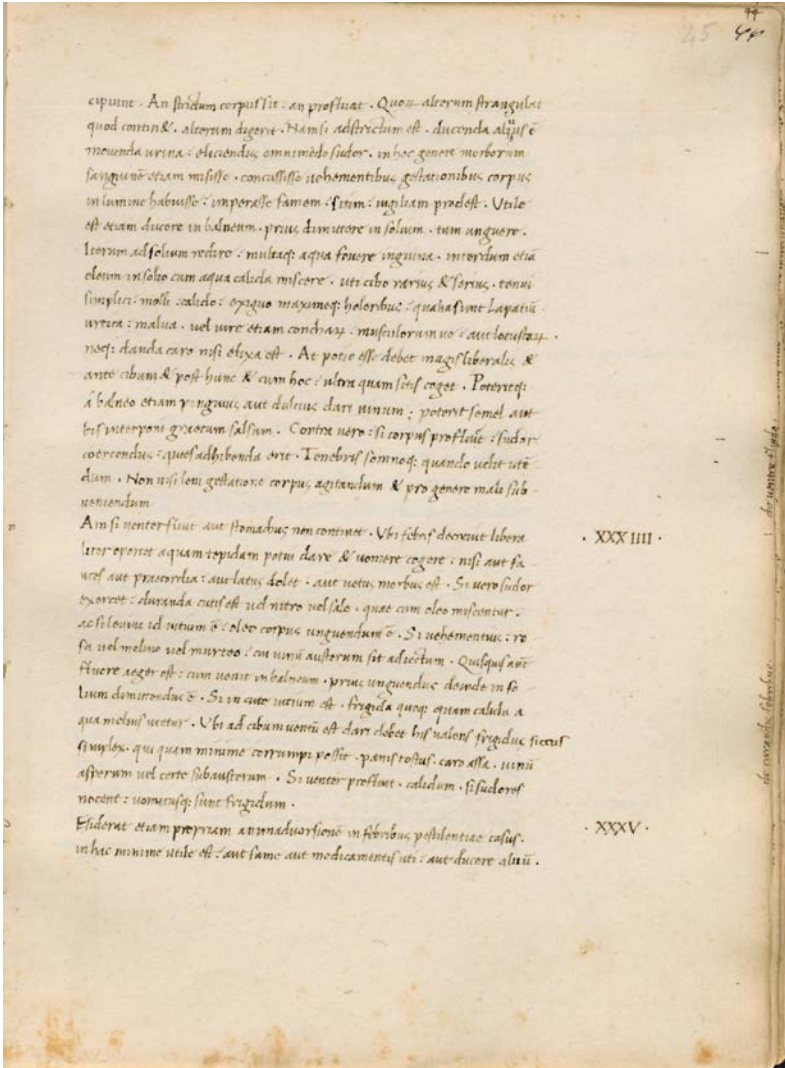 44
45 44
cipiunt . An strictum corpus sit : an profluat . Quoꝝ alterum strangulat
quod contin& . alterum digerit . Nam si adstrictum est . ducenda aluus ē
mouenda urina : eliciendus omnimodo sudor . in hoc genere morborum
sanguinē etiam misisse . concussisse uehementibus gestationibus corpus
in lumine habuisse : imperasse famem : sitim : uigiliam prodest . Utile
est etiam ducere in balneum . prius dimittere in solium . tum unguere .
Iterum ad solium redire : multaq; aqua fouere inguina . interdum etiā
oleum in solio cum aqua calida miscere . uti cibo rarius & serius . tenui
simplici : molli : calido : exiguo maximeq; holeribus : qualia sunt Lapatiū
urtica : malua . uel iure etiam conchaꝝ . musculorum ue : aut locustaꝝ .
neq; danda caro nisi elixa est . At potio esse debet magis liberalis &
ante cibum & post hunc & cum hoc : ultra quam sitis coget . Poteritq;
a balneo etiam pinguius aut dulcius dari uinum ; poterit semel aut
bis interponi graecum salsum . Contra uero : si corpus profluit : sudor
coercendus : quies adhibenda erit . Tenebris somnoq; quando uelit utē
dum . Non nisi leni gestatione corpus agitandum & pro genere mali sub
ueniendum
Am si uenter fluit aut stomachus non continet . Ubi febris decreuit libera · XXXIIII ·
liter oportet aquam tepidam potui dare & uomere cogere : nisi aut fa
uces aut praecordia : aut latus dolet . aut uetus morbus est . Si uero sudor
exercet : duranda cutis est uel nitro uel sale . quae cum oleo miscentur .
ac si leuius id uitium ē : oleo corpus unguendum ē . Si uehementius : ro
sa uel melino uel murteo : cui uinū austerum sit adiectum . Quisquis aūt
fluore aeger est : cum uenit in balneum . prius unguendus deinde in so
lium dimittendus ē . Si in cute uitium est . frigida quoq; quam calida a
qua melius utetur . Ubi ad cibum uentū est dari debet his ualens frigidus siccus
simplex . qui quam minime corrumpi possit . panis tostus . caro assa . uinū
asperum uel certe subausterum . Si uenter profluit . calidum . si sudores
nocent : uomitusq; sunt frigidum .
Esiderat etiam propriam animaduersionē in febribus pestilentiae casus . · XXXV ·
in hac minime utile est : aut fame aut medicamentis uti : aut ducere aluū .
de uentre fluido
de curandis febribus